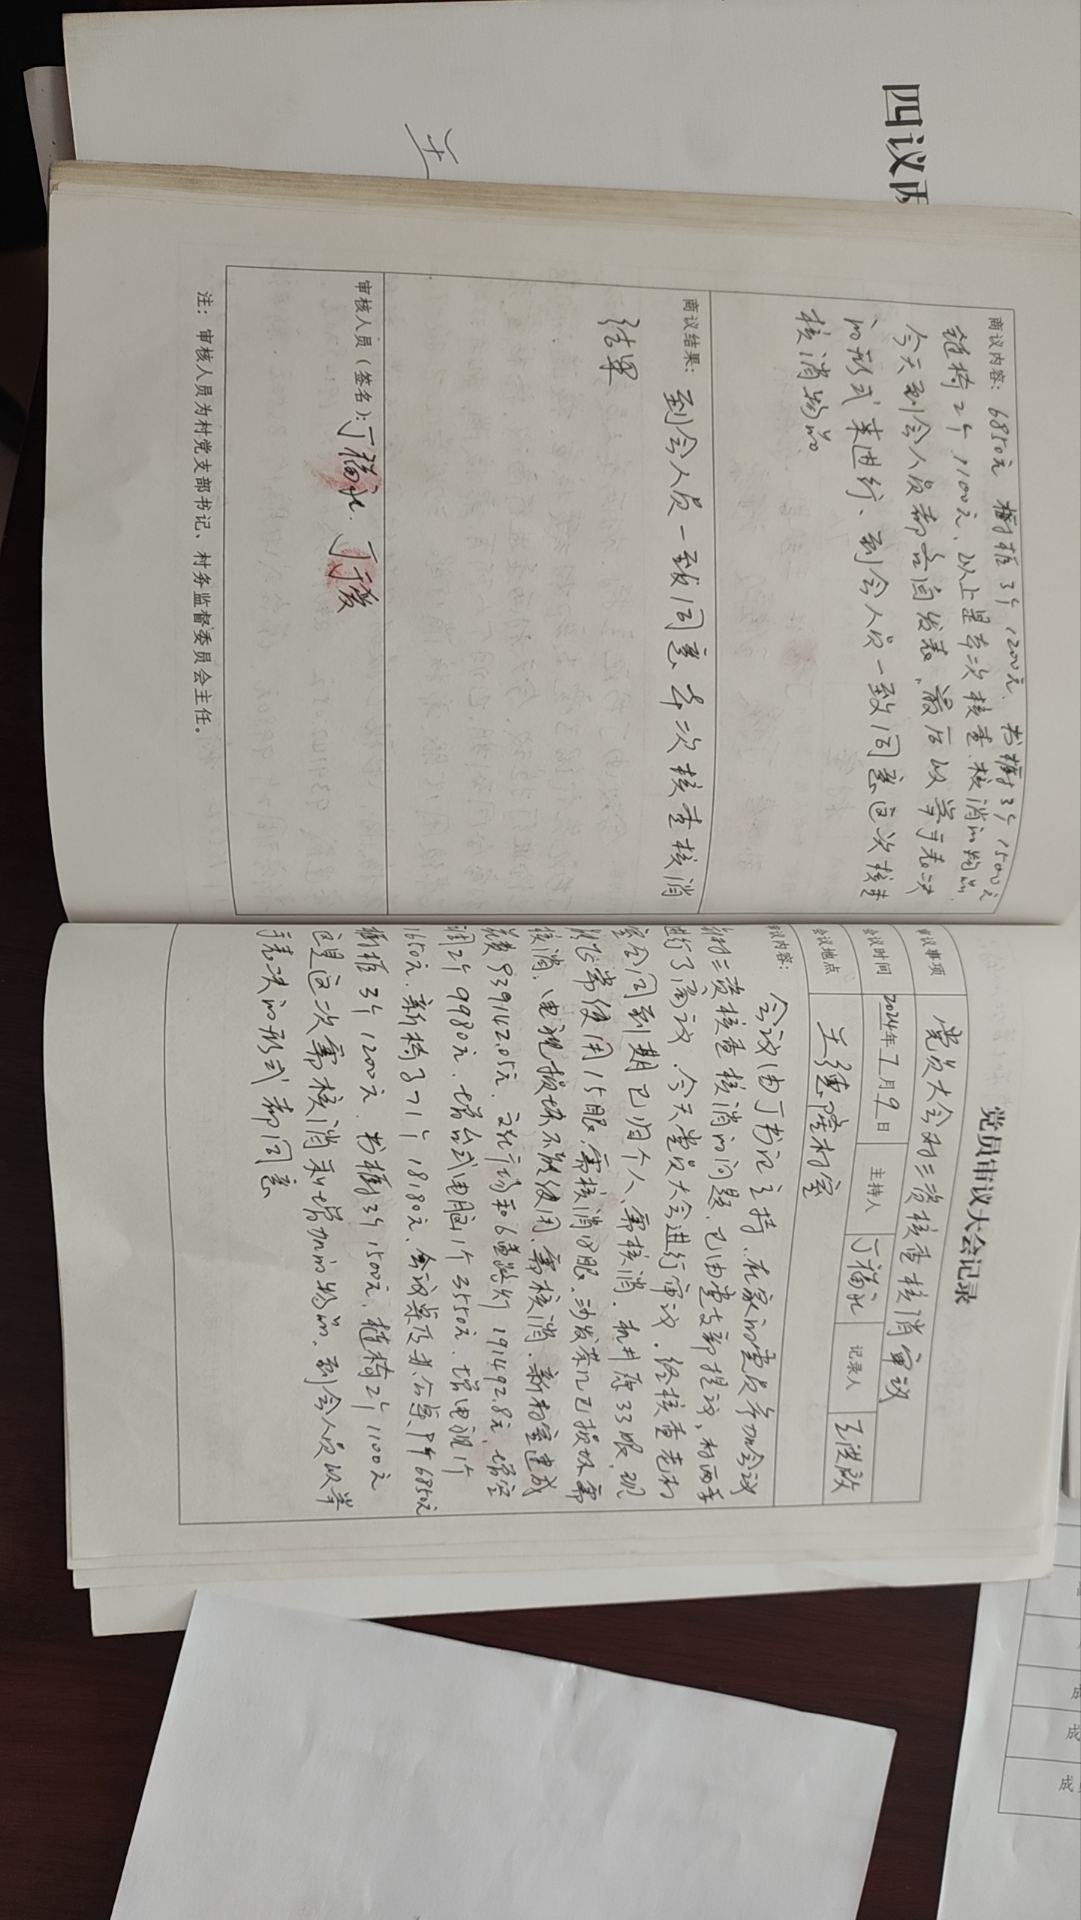 四议两
王
商议内容：6850元 橱柜3个1200元、书橱3个1500元
链椅2个1100元、以上是本次核查、核消的物品
今天到会人员都言间发表,最后以举手表决
的形式来进行、到会人员一致同意这次核查
核消物品
商议结果：到会人员一致同意本次核查核消
结果
审核人员（签名）：丁福礼
注：审核人员为村党支部书记、村务监督委员会主任。
党员审议大会记录
审议事项 党员大会对三资核查核消审议
会议时间 2024年7月9日 主持人 丁福礼 记录人 王洪啟
会议地点 王德隆村室
审议内容：
会议由丁书记主持、在家的党员参加会议
对三资核查核消的问题、已由党支部提议,村两委
进行了商议、今天党员大会进行审议.经核查老村
室合同到期已归个人、需核消.机井原33眼,现
正常使用15眼,需核消18眼.沙发茶几已损坏需
核消、电视损坏不能使用、需核消.新村室建成
花费93914.05元、文化广场和6盏路灯191492.8元、增空
调2个9980元、增台式电脑1个3550元、增电视1个
1650元、新椅子71个18180元、会议桌及办公桌6850元
橱柜3个1200元、书橱3个1500元、链椅2个1100元
这是这次需核消和增加的物品、到会人员以举
手表决的形式都同意
成
成
成